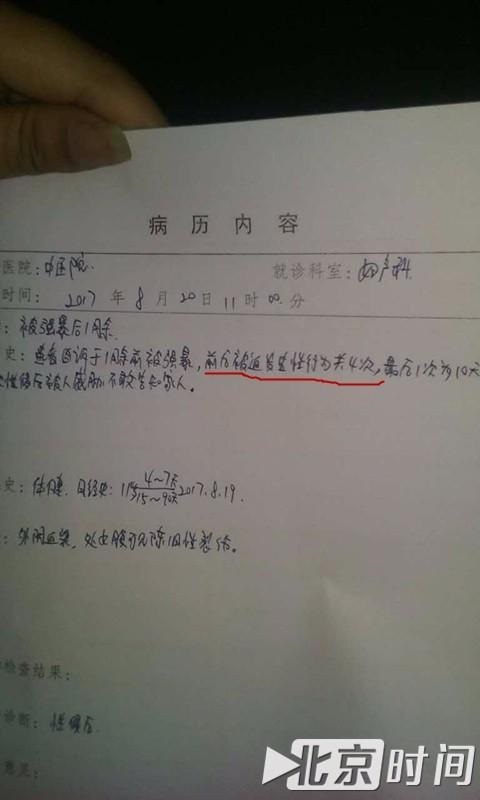 病历内容
医院：中医院
就诊科室：妇产科
时间：2017年8月20日11时00分
：被强暴后1月余
史：患者自诉于1月余前被强暴，前后被迫发生性行为共4次，最后1次为10天
性侵后被人威胁不敢告知家人。
史：体健，月经史：11岁 4~7天/15~90天 2017.8.19.
：外阴 处女膜可见陈旧性裂伤。
检查结果：
诊断：性侵后
意见：
北京时间